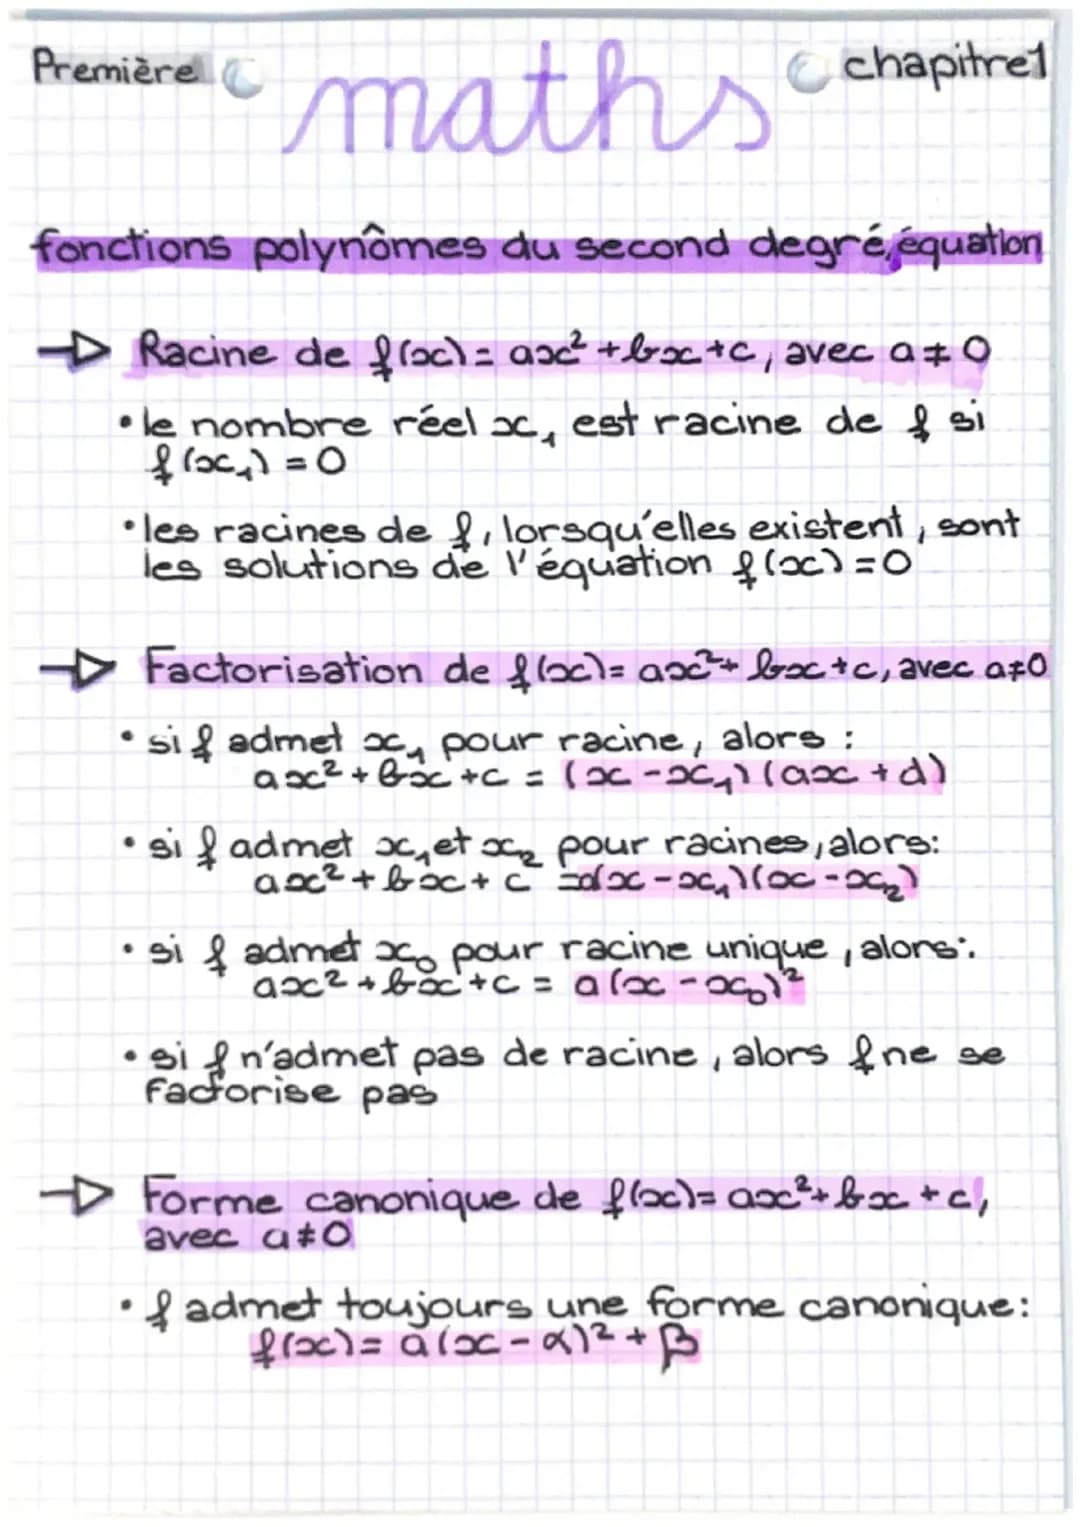 Première maths chapitre1
fonctions polynômes du second degré, équation
Racine de f(x) = ax² + bx + c, avec a ≠ 0
• le nombre réel x₁ est racine de f si
f(x₁) = 0
• les racines de f, lorsqu'elles existent, sont
les solutions de l'équation f(x) = 0
Factorisation de f(x) = ax² + bx + c, avec a ≠ 0
• si f admet x₁ pour racine, alors :
ax² + bx + c = (x - x₁)(ax + d)
• si f admet x₁ et x₂ pour racines, alors :
ax² + bx + c = a(x - x₁)(x - x₂)
• si f admet x₀ pour racine unique, alors :
ax² + bx + c = a(x - x₀)²
• si f n'admet pas de racine, alors f ne se
factorise pas
Forme canonique de f(x) = ax² + bx + c,
avec a ≠ 0
• f admet toujours une forme canonique :
f(x) = a(x - α)² + β